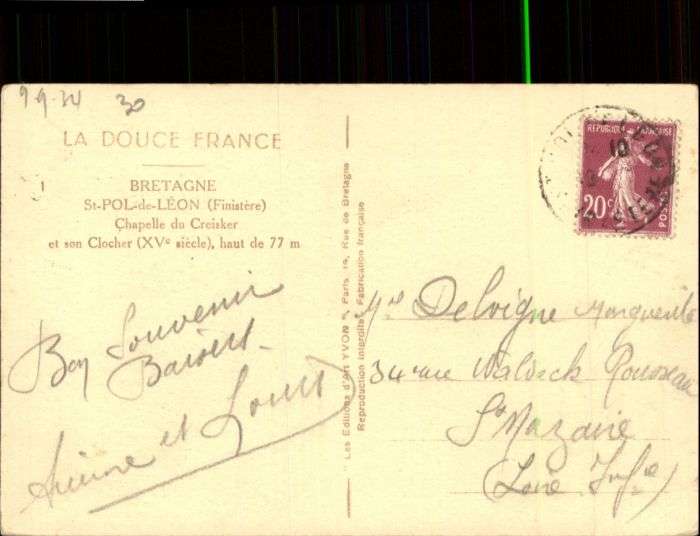 9-9-34 30
LA DOUCE FRANCE
1
BRETAGNE
St-POL-de-LÉON (Finistère)
Chapelle du Creisker
et son Clocher (XVe siècle), haut de 77 m
Bon Souvenir
Baisers
et Louis
Les Editions d'Art YVON, Paris, Rue de Bretagne
Reproduction interdite. Fabrication française
REPUBLIQUE FRANÇAISE
20c
POSTES
Delvigne Marguerite
34 rue Waldeck Rousseau
St Nazaire
(Loire Infre)